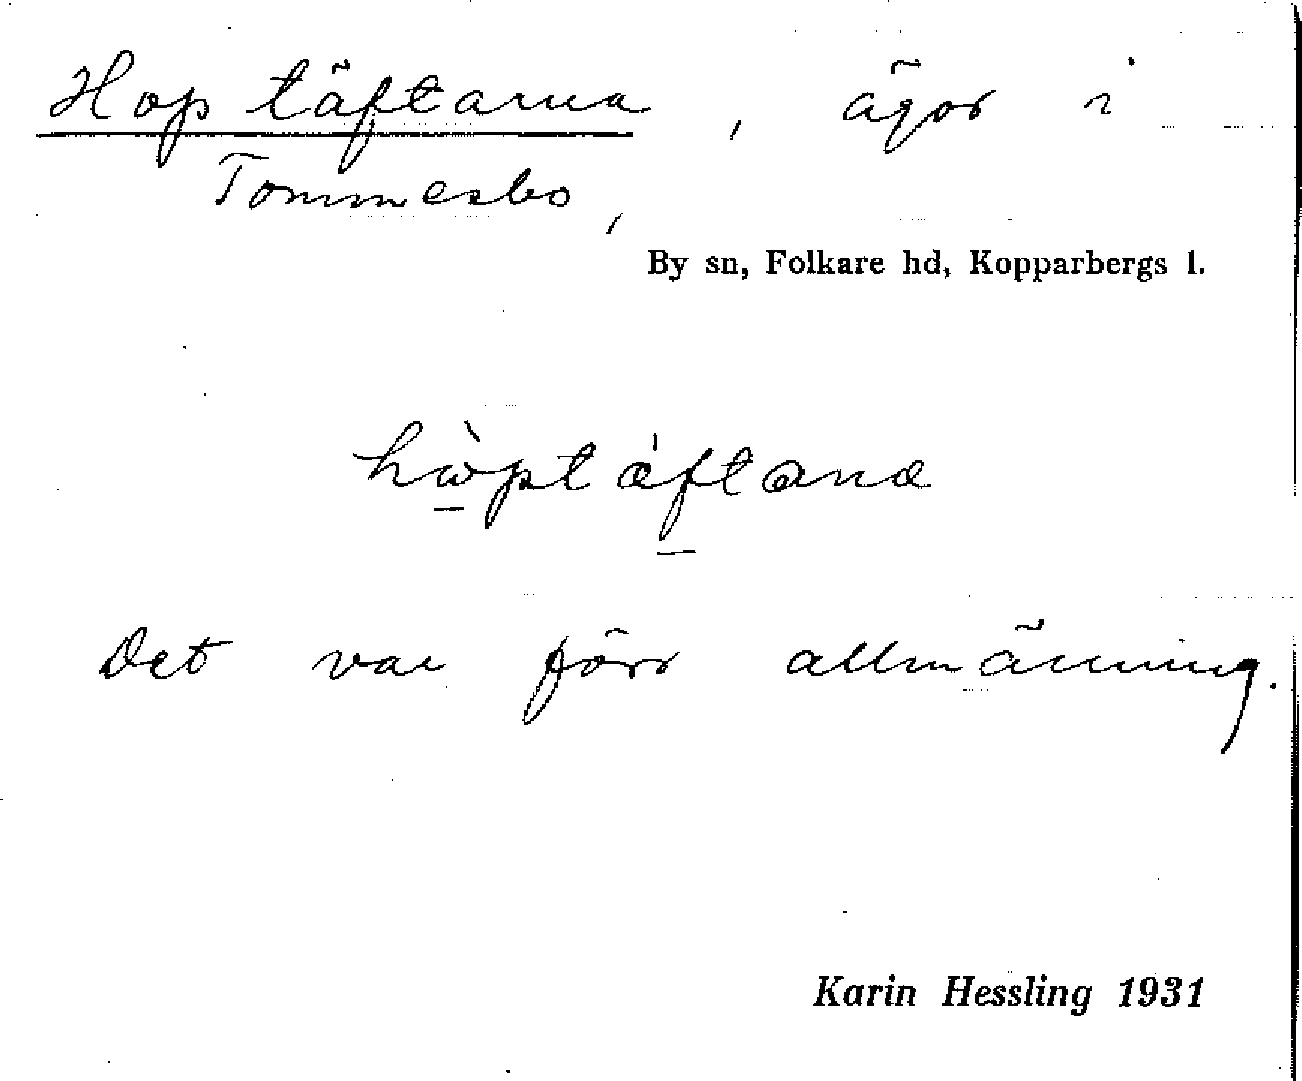 Hoptäftarna, ägor i
Tommesbo,
By sn, Folkare hd, Kopparbergs l.
hòptáftana
Det var förr allmänning.
Karin Hessling 1931